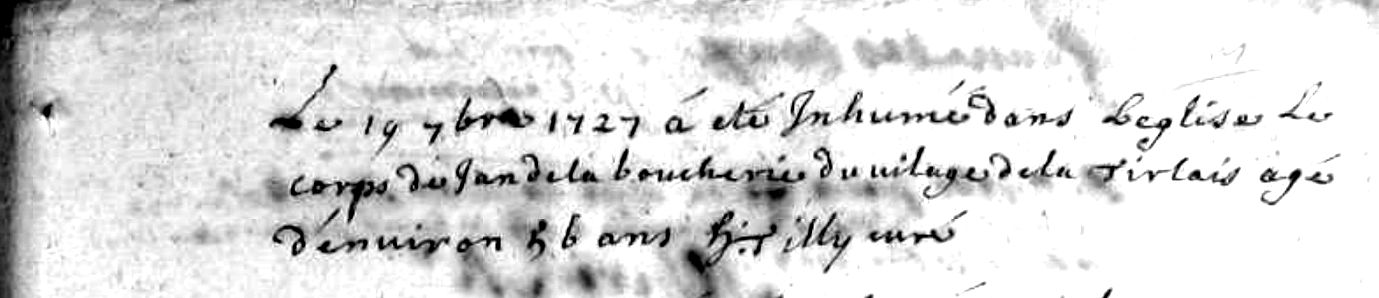 Le 19 7bre 1727 á eté Inhumé dans Leglise Le
corps de Jan de la boucherie du vilage de la Tirlais agé
d'énuiron 56 ans H: Tilly curé